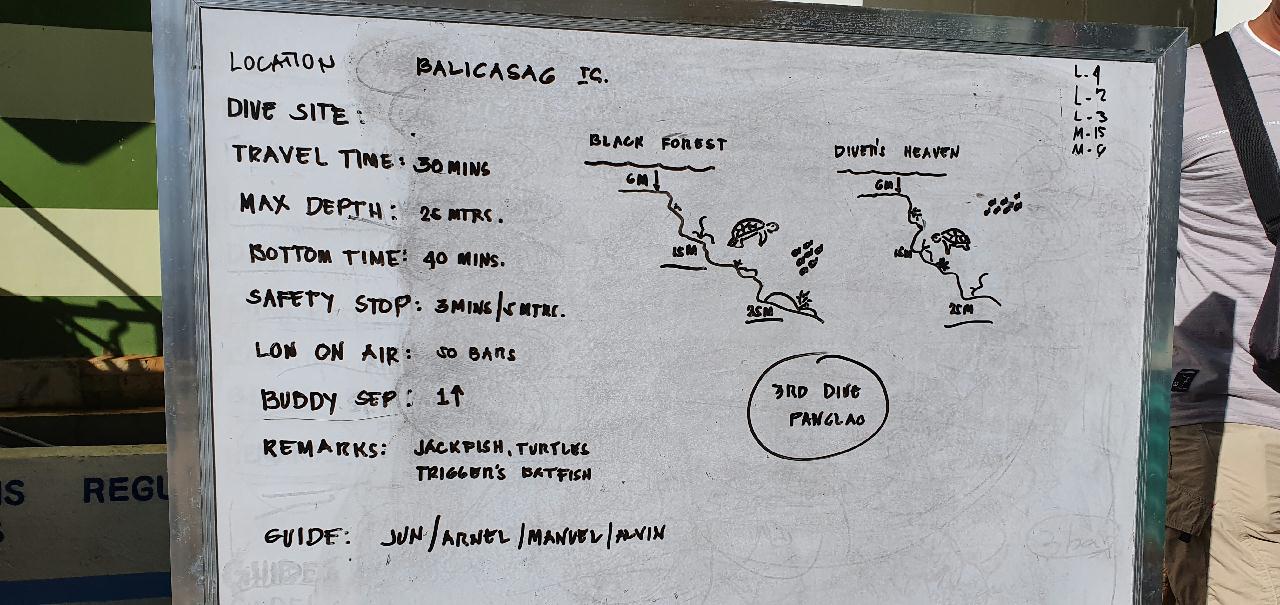 LOCATION BALICASAG IS.
DIVE SITE:
TRAVEL TIME: 30 MINS
MAX DEPTH: 25 MTRS.
BOTTOM TIME: 40 MINS.
SAFETY STOP: 3 MINS/5 MTRS.
LOW ON AIR: 50 BARS
BUDDY SEP: 1↑
REMARKS: JACKFISH, TURTLES
TRIGGER'S BATFISH
GUIDE: JUN/ARNEL/MANUEL/ALVIN
BLACK FOREST
6M
15M
25M
DIVER'S HEAVEN
6M
15M
25M
3RD DIVE
PANGLAO
L-2
L-3
M-15
REGU